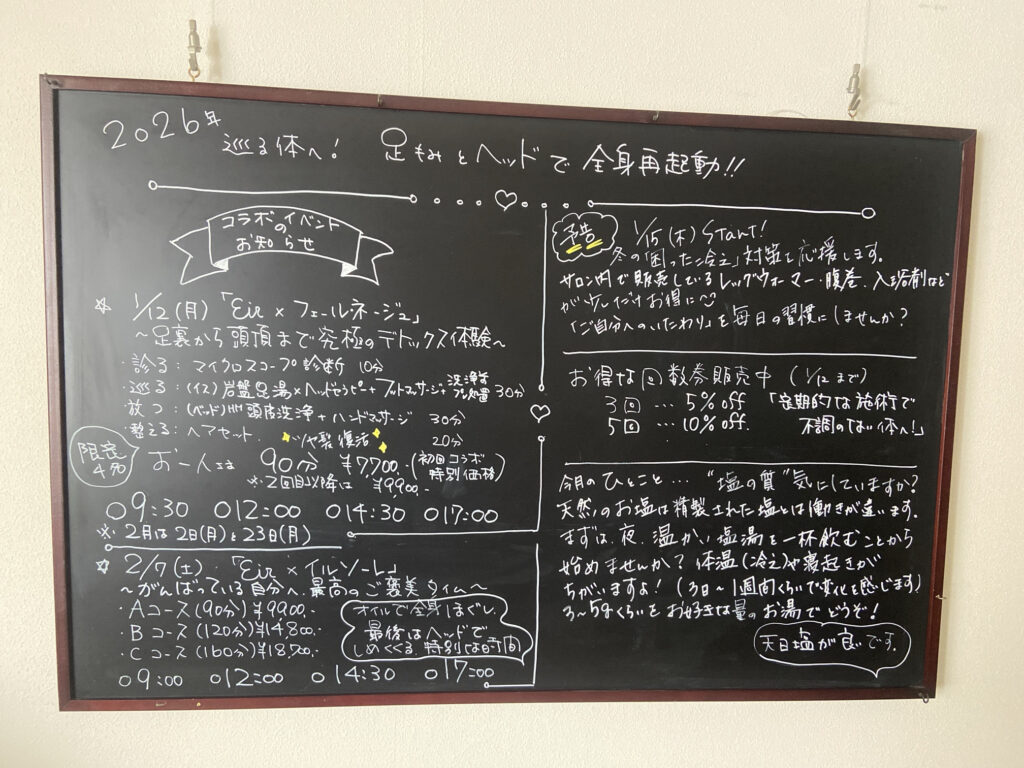 2026年
巡る体へ! 足もみとヘッドで全身再起動!!
コラボの
イベント
お知らせ
☆ 1/12(月)「Eir×フェールネージュ」
～足裏から頭頂まで究極のデトックス体験～
・診る:マイクロスコープ診断 10分
・巡る:(イス)岩盤足湯×ヘッドセラピー+フットマサージ+洗浄前プレ処置 30分
放つ:(ベッド)頭皮洗浄+ハンドマサージ 30分
・整える:ヘアセット. ツヤ髪復活 20分
限定
4名
お一人さま 90分 ¥7700.(初回コラボ特別価格)
※・2回目以降は ¥9900.
○9:30 ○12:00 ○14:30 ○17:00
※2月は2日(月)と23日(月)
☆ 2/7(土)・「Eir×イルソーレ」
～がんばっている自分へ.最高のご褒美タイム～
・Aコース(90分)¥9900.
・Bコース(120分)¥14800.
・Cコース(160分)¥18,700.
オイルで全身ほぐし
最後はヘッドで
しめくくる.特別な時間
○9:00 ○12:00 ○14:30 ○17:00
予告
1/15(木)Start!
冬の「困った冷え」対策で応援します。
サロン内で販売しているレッグウォーマー・腹巻.入浴剤など
が少しだけお得に♡
「ご自分へのいたわり」を毎日の習慣にしませんか?
お得な回数券販売中(1/12まで)
3回…5%off 「定期的な施術で
5回…10%off. 不調のない体へ!」
今月のひとこと…“塩の質”気にしていますか?
天然のお塩は精製された塩とは働きが違います。
まずは、夜、温かい塩湯を一杯飲むことから
始めませんか?体温(冷え)や寝起きが
ちがいますよ!(3日～1週間くらいで変化を感じます)
3～5gくらいをお好きな量のお湯でどうぞ!
天日塩が良いです.